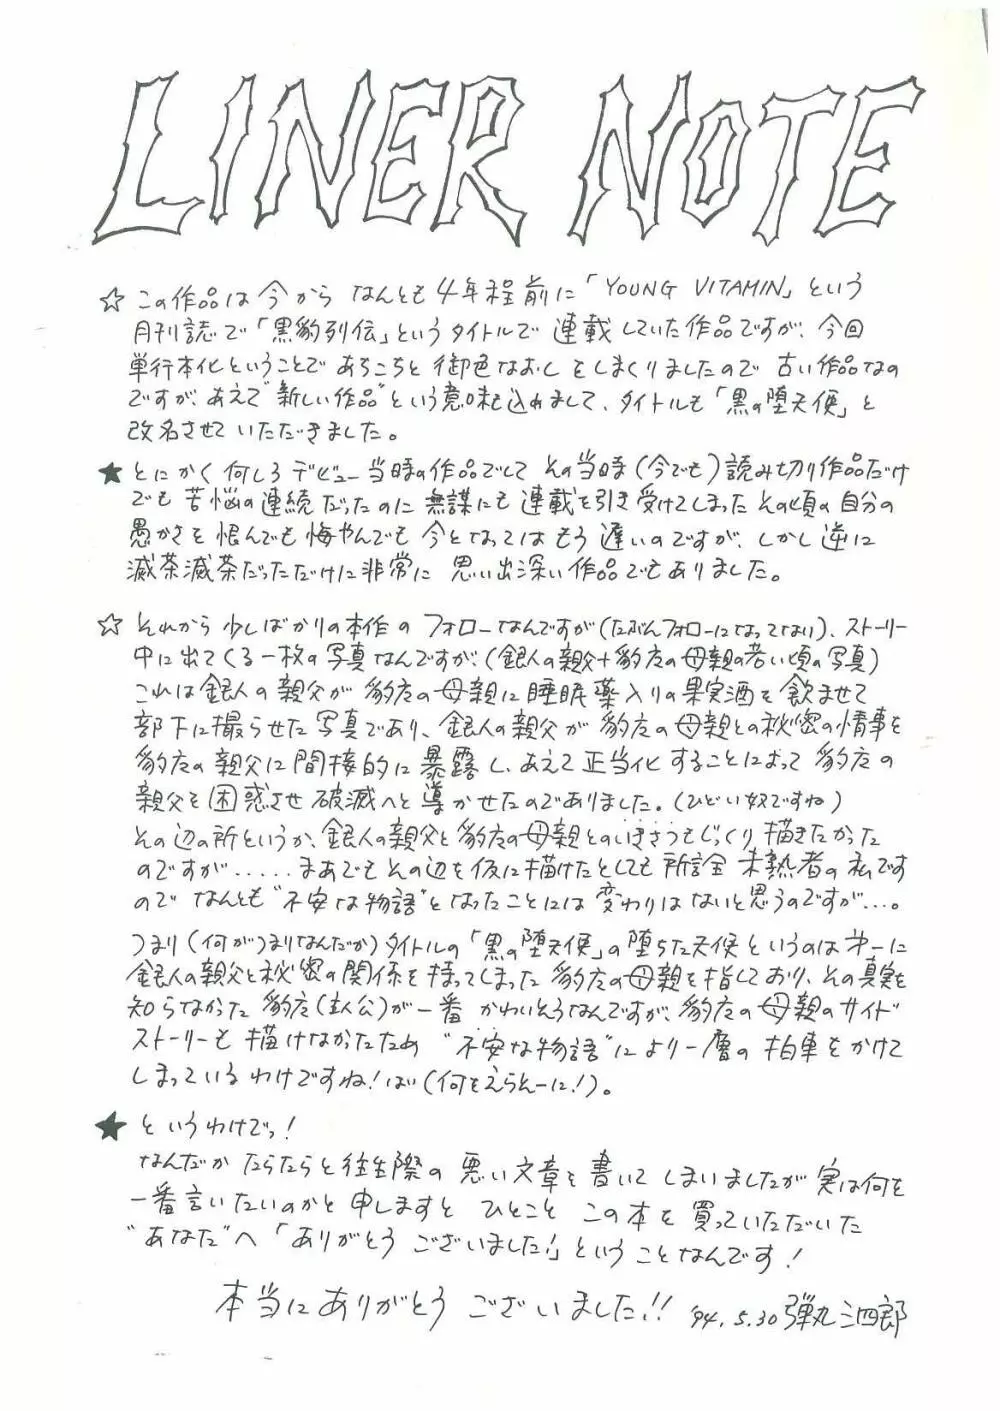 LINER NOTE
☆ この作品は今から なんとも4年程前に「YOUNG VITAMIN」という
月刊誌で「黒豹列伝」というタイトルで 連載していた作品ですが、今回
単行本化ということで あちこちと 御色なおし をしまくりましたので 古い作品なの
ですが、あえて“新しい作品”という意味も込めまして、タイトルも「黒の堕天使」と
改名させていただきました。
★ とにかく何しろデビュー当時の作品でして その当時(今でも)読み切り作品だけ
でも 苦悩の連続だったのに 無謀にも 連載を引き受けてしまった その頃の自分の
愚かさを 恨んでも 悔やんでも 今となってはもう遅いのですが、しかし逆に
滅茶滅茶だっただけに非常に 思い出深い作品でもありました。
☆ それから少しばかりの本作の フォローなんですが(たぶんフォローになってない)、ストーリー
中に出てくる一枚の写真なんですが、(銀人の親父+豹彦の母親の若い頃の写真)
これは銀人の親父が 豹彦の母親に睡眠薬入りの果実酒を飲ませて
部下に撮らせた写真であり、銀人の親父が 豹彦の母親との秘密の情事を
豹彦の親父に間接的に暴露し、あえて正当化することによって 豹彦の
親父を困惑させ破滅へと導かせたのでありました。(ひどい奴ですね)
その辺の所というか、銀人の親父と豹彦の母親とのいきさつもじっくり描きたかった
のですが.....まあでもその辺を仮に描けたとしても所詮 未熟者の私です
ので なんとも“不安な物語”となったことには 変わりはないと思うのですが…。
つまり(何がつまりなんだか)タイトルの「黒の堕天使」の堕ちた天使というのは第一に
銀人の親父と秘密の関係を持ってしまった 豹彦の母親を指しており、その真実を
知らなかった 豹彦(主人公)が一番 かわいそうなんですが、豹彦の母親のサイド
ストーリーも 描けなかったため “不安な物語”により一層の拍車をかけて
しまっているわけですね!はい(何をえらそーに!)。
★ というわけでっ!
なんだか たらたらと往生際の悪い文章を書いてしまいましたが実は何を
一番言いたいのかと 申しますと ひとこと この本を買っていただいた
“あなた”へ「ありがとう ございました!」ということなんです!
本当にありがとう ございました!! '94.5.30 弾丸三四郎